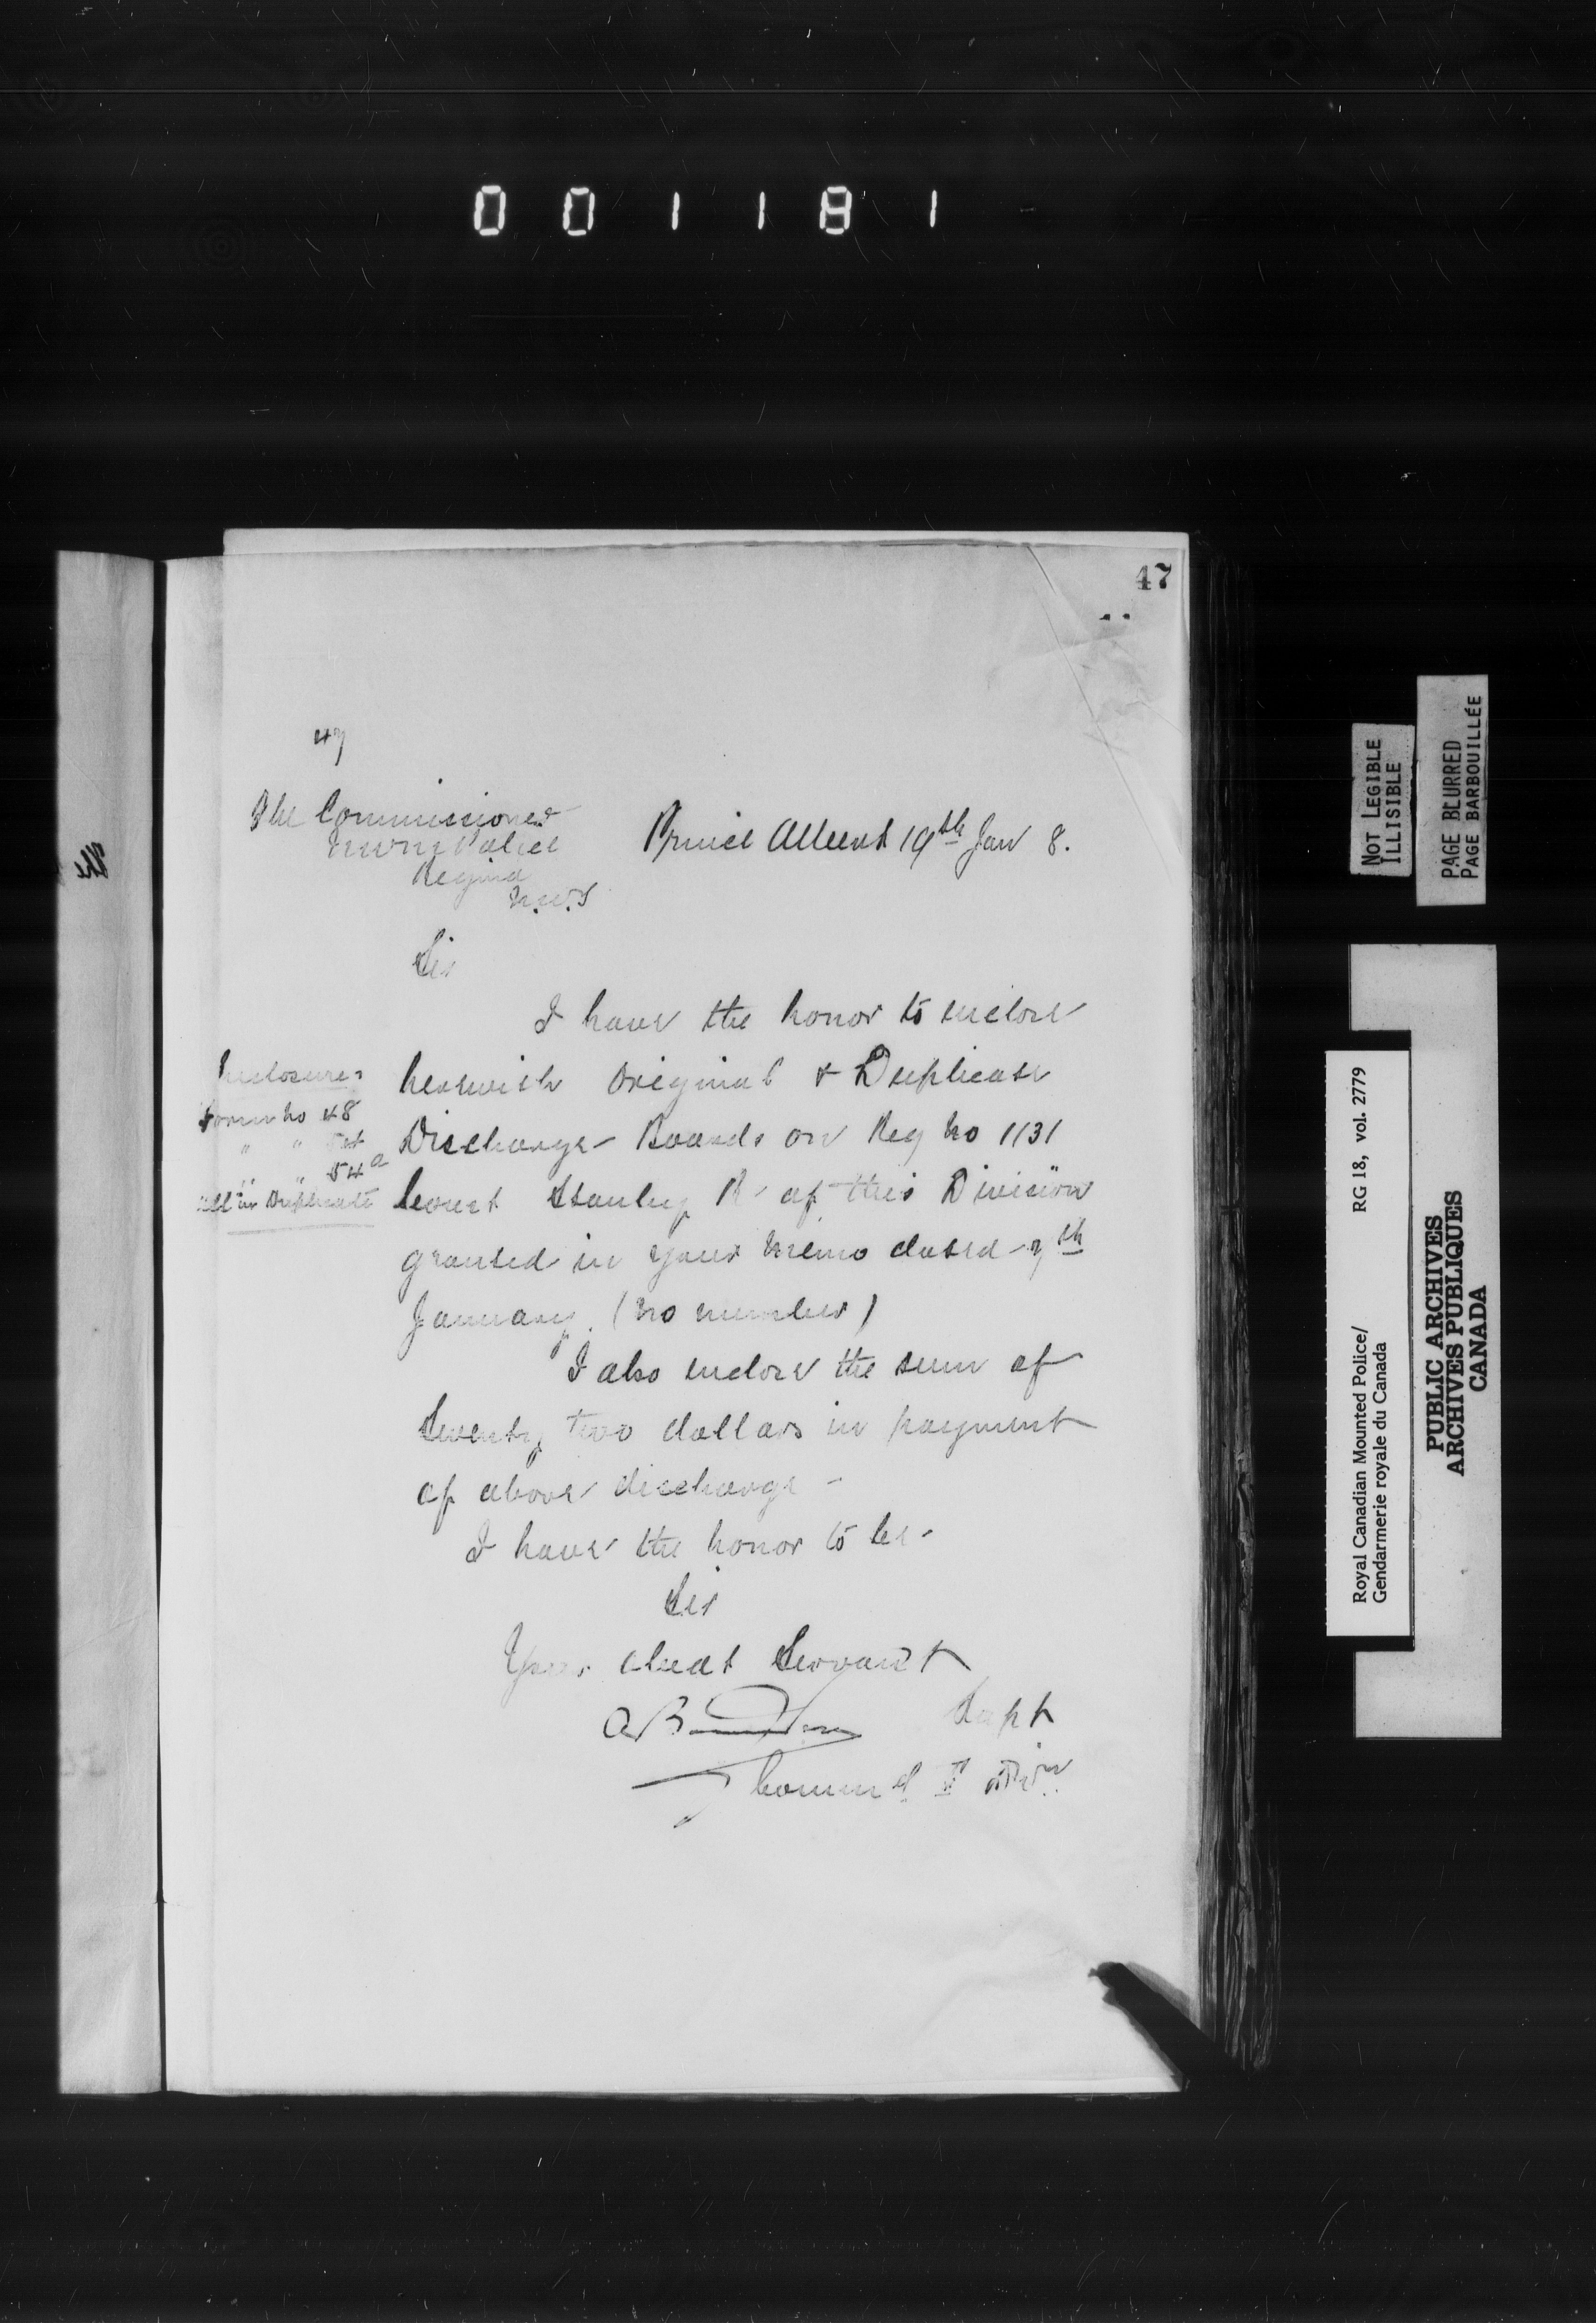 001181
47
47
The Commissioner
N.W.M. Police
Regina
N.W.T
Prince Albert 19th Jan 8.
Sir
I have the honor to enclose
herewith Original & Duplicate
Discharge Boards on Reg No 1131
Const Stanley R of this Division
granted in your Memo dated 7th
January. (No number)
I also enclose the sum of
Seventy two dollars in payment
of above discharge -
I have the honor to be -
Sir
Your obedt Servant
Supt
Commd F Divn
Enclosures
Form No 48
" " 54
" " 54a
all in Duplicate
The
NOT LEGIBLE
ILLISIBLE
PAGE BLURRED
PAGE BARBOUILLÉE
Royal Canadian Mounted Police/
Gendarmerie royale du Canada
RG 18, vol. 2779
PUBLIC ARCHIVES
ARCHIVES PUBLIQUES
CANADA